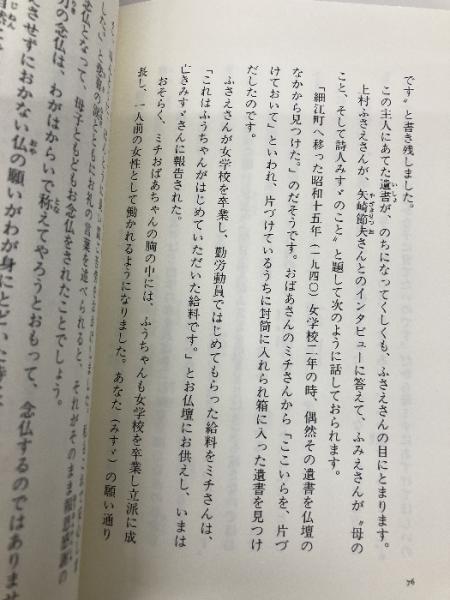 です〟と書き残しました。
この主人にあてた遺書が、のちになってくしくも、ふさえさんの目にとまります。
上村ふさえさんが、矢崎節夫さんとのインタビューに答えて、ふみえさんが〝母の
こと、そして詩人みすゞのこと〟と題して次のように話しておられます。
「細江町へ移った昭和十五年（一九四〇）女学校二年の時、偶然その遺書を仏壇の
なかから見つけた。」のだそうです。おばあさんのミチさんから「ここいらを、片づ
けておいて」といわれ、片づけているうちに封筒に入れられ箱に入った遺書を見つけ
だしたのです。
ふさえさんが女学校を卒業し、勤労動員ではじめてもらった給料をミチさんは、
「これはふうちゃんがはじめていただいた給料です。」とお仏壇にお供えし、いまは
亡きみすゞさんに報告された。
おそらく、ミチおばあちゃんの胸の中には、ふうちゃんも女学校を卒業し立派に成
長し、一人前の女性として働かれるようになりました。あなた（みすゞ）の願い通り
76
お礼の言葉を述べられると、それがそのまま報恩感謝の
念仏となって、母子ともどもお念仏をされたことでしょう。
の念仏は、わがはからいで称えてやろうとおもって、念仏するのではありませ
させずにおかない仏の願いがわが身にとどいた